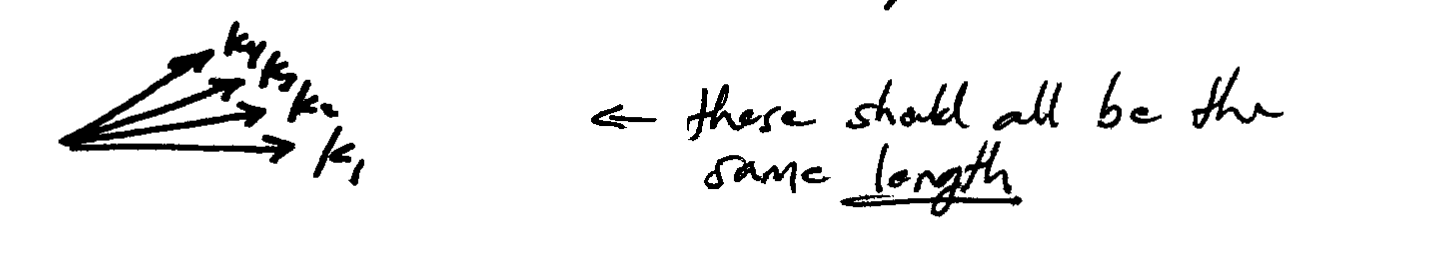 k4
k3
k2
k1
← these should all be the
same length